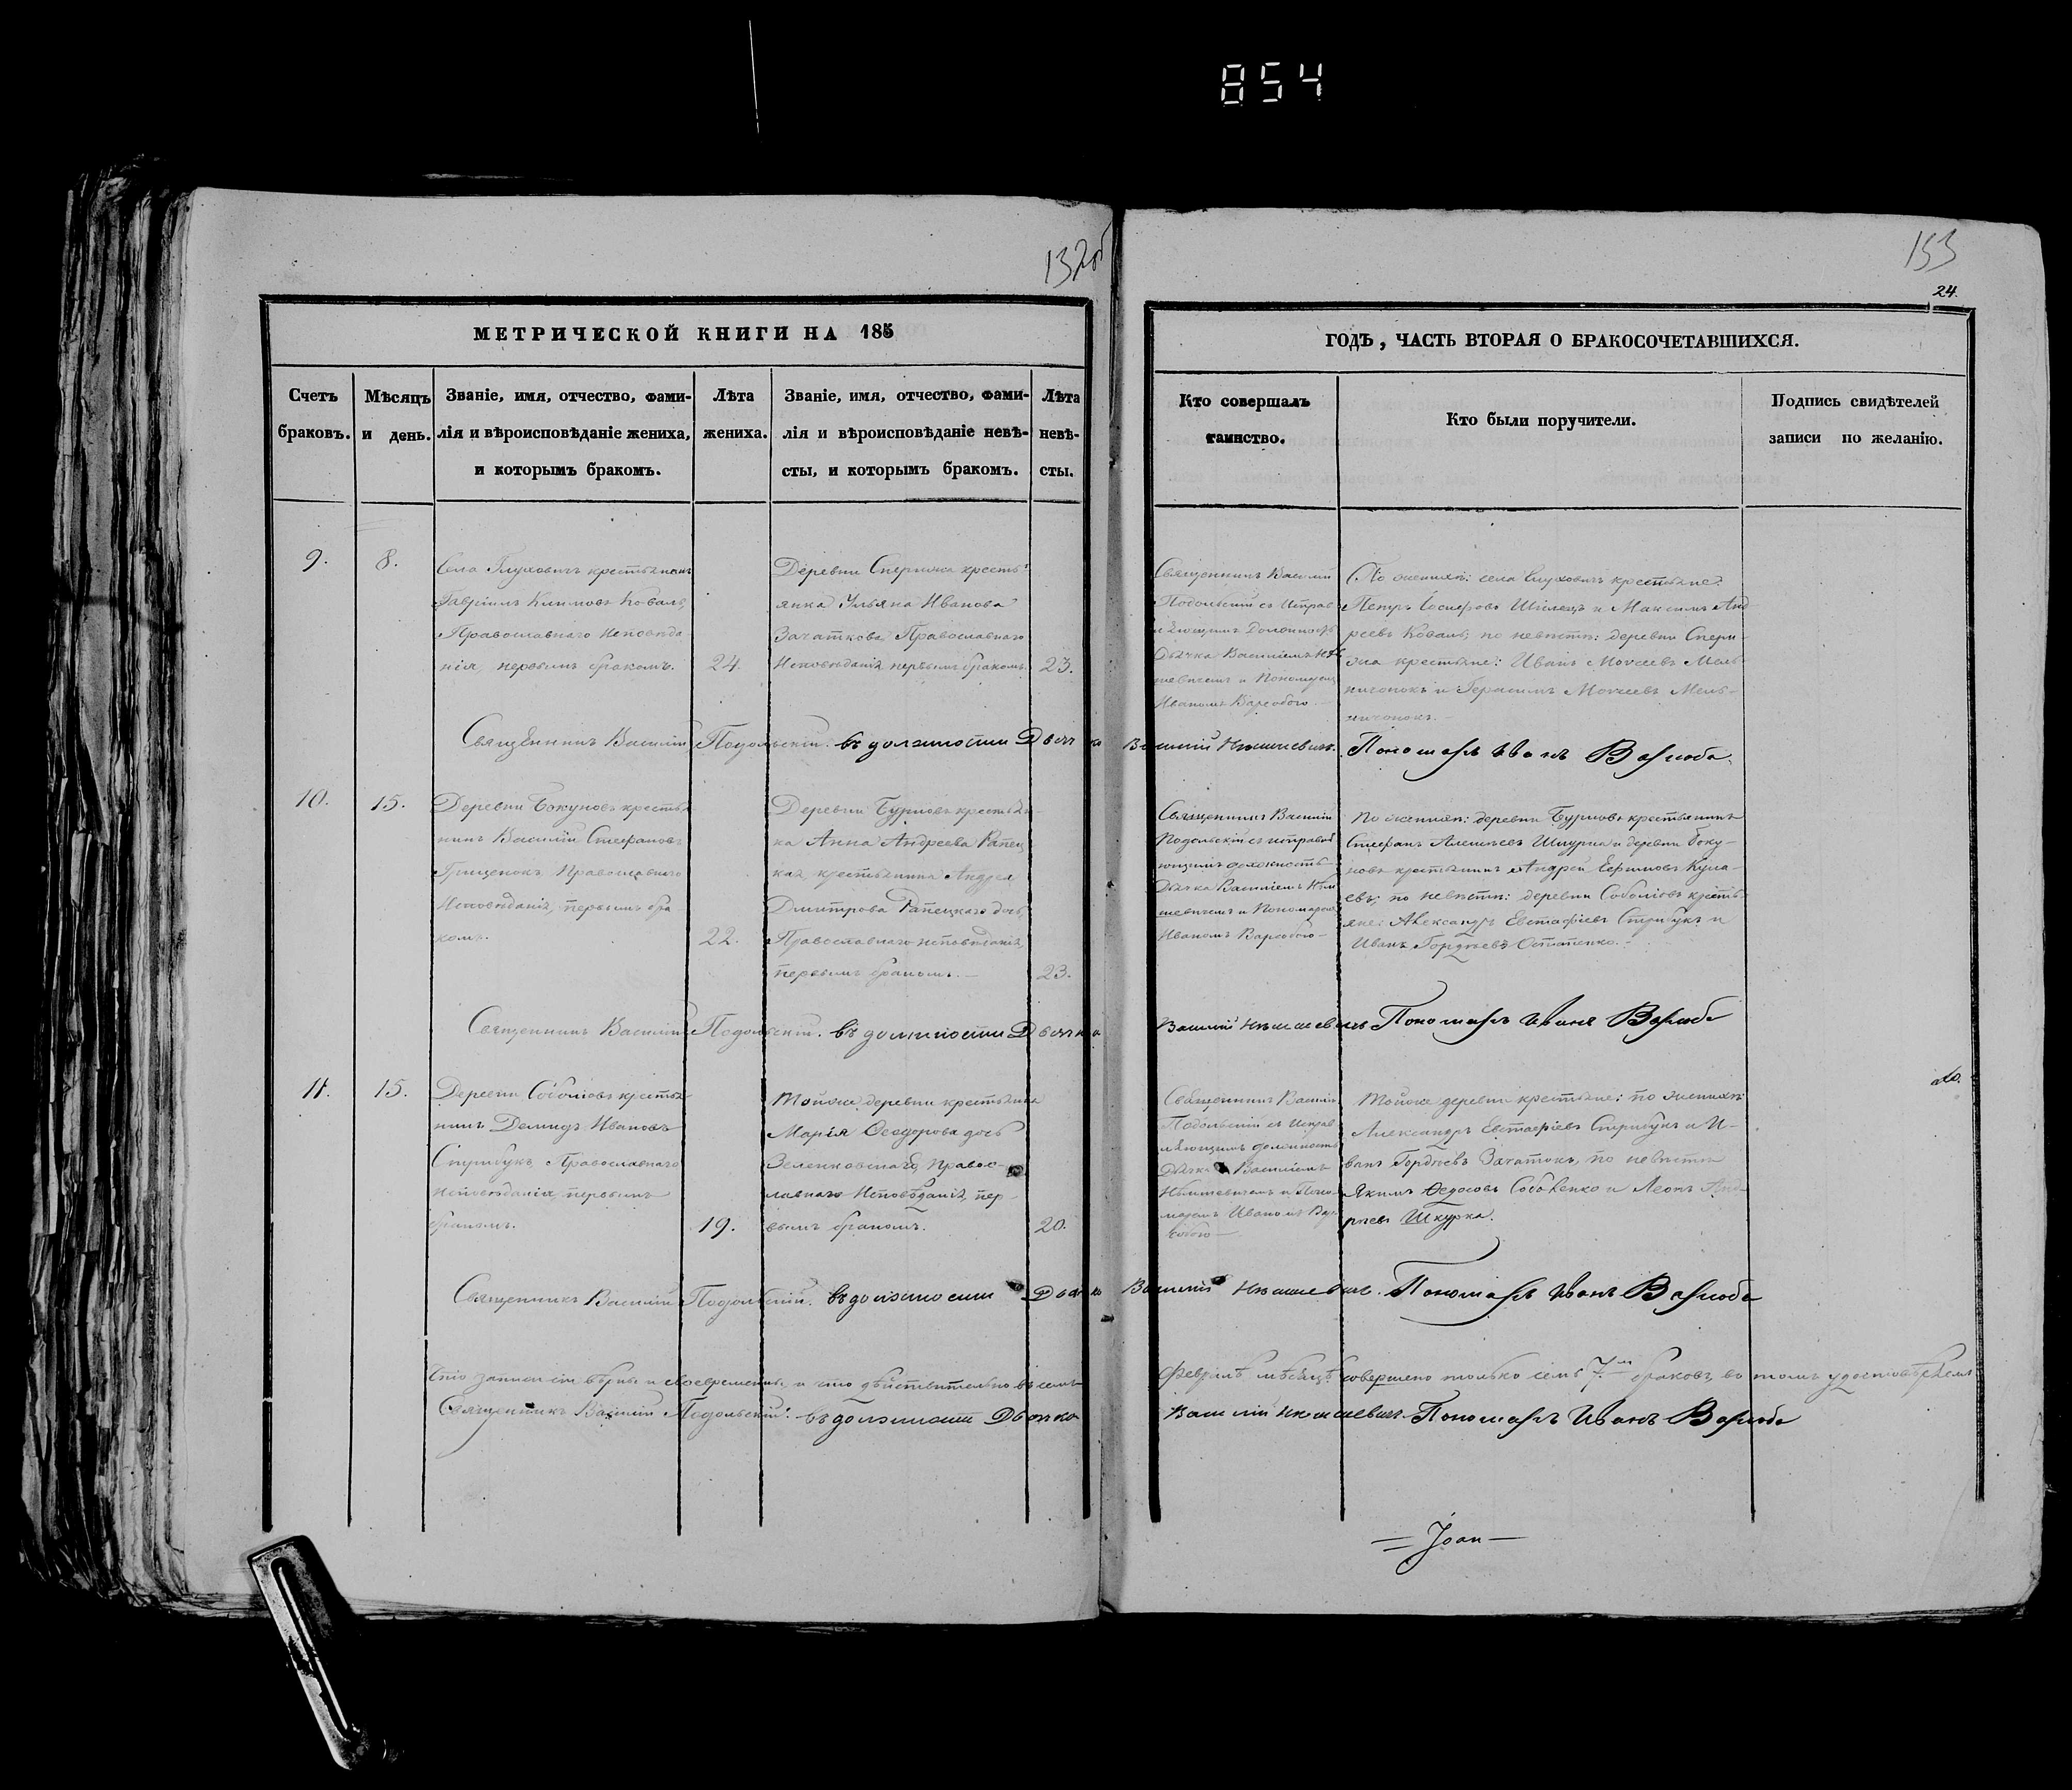 854
132об
153
24.
МЕТРИЧЕСКОЙ КНИГИ НА 185
ГОДЪ, ЧАСТЬ ВТОРАЯ О БРАКОСОЧЕТАВШИХСЯ.
Счетъ
браковъ.
Мѣсяцъ
и день.
Званіе, имя, отчество, фами-
лія и вѣроисповѣданіе жениха,
и которымъ бракомъ.
Лѣта
жениха.
Званіе, имя, отчество, фами-
лія и вѣроисповѣданіе невѣ-
сты, и которымъ бракомъ.
Лѣта
невѣ-
сты.
Кто совершалъ
таинство.
Кто были поручители.
Подпись свидѣтелей
записи по желанію.
9.
8.
Села Глуховичъ крестьянинъ
Гавріилъ Климовъ Коваль,
Православнаго Исповѣда-
нія, первымъ бракомъ.
24.
Деревни Сперижа кресть-
янка Ульяна Иванова
Зачаткова Православнаго
Исповѣданія первымъ бракомъ.
23.
Священникъ Василій
Подольскій съ Исправ
ляющимъ Должность
Дьячка Василіемъ
и Пономаремъ
Иваномъ Варсобого
По женихѣ: села Глуховичъ крестьяне:
Петръ Іосифовъ и Максимъ Анд
реевъ Коваль; по невѣстѣ: деревни Спери-
жа крестьяне: Иванъ Моисеевъ Мель-
ничонокъ и Герасимъ Моисеевъ Мель-
ничонокъ.
Священникъ Василій Подольскій. въ должности Дьячка Василій Пономарь Иванъ
10.
15.
Деревни Бокуновъ крестья-
нинъ Василій Стефановъ
Грищенокъ, Православнаго
Исповѣданія, первымъ бра-
комъ.
22.
Деревни Бурновъ крестьян-
ка Анна Андреева Рапец
кая, крестьянина Андрея
Дмитрова Рапецкаго дочь,
Православнаго исповѣданія,
первымъ бракомъ.
23.
Священникъ Василій
Подольскій съ исправля
ющимъ должность
Дьячка Василіемъ
и Пономаремъ
Иваномъ Варсобого
По женихѣ: деревни Бурновъ крестьянинъ
Стефанъ Алексѣевъ Шкурка и деревни Боку-
новъ крестьянинъ Андрей Ефимовъ Кула-
евъ; по невѣстѣ: деревни Соболіовъ кресть-
яне: Александръ Евстафіевъ Сприбукъ и
Иванъ Гордѣевъ Остапенко.
Священникъ Василій Подольскій. въ должности Дьячка Василій Пономарь Иванъ
11.
15.
Деревни Соболіовъ крестья-
нинъ Демидъ Ивановъ
Сприбукъ, Православнаго
исповѣданія первымъ
бракомъ.
19.
Тойже деревни крестьянка
Марія Ѳеодорова дочь
Зеленковскаго, Правос-
лавнаго Исповѣданія, пер-
вымъ бракомъ.
20.
Священникъ Василій
Подольскій съ Исправ
ляющимъ должность
Дьячка Василіемъ
и Поно-
маремъ Иваномъ Вар-
собого
Тойже деревни крестьяне: по женихѣ
Александръ Евстафіевъ Сприбукъ и И-
ванъ Гордѣевъ Зачатокъ, по невѣстѣ
Якимъ Ѳедосовъ Соболенко и Леонъ Анд-
реевъ Шкурка.
Священникъ Василій Подольскій. въ должности Дьячка Василій Пономарь Иванъ
Что записи сіи вѣрны и своевременны, и что дѣйствительно въ семъ Февралѣ мѣсяцѣ совершено только семь 7. браковъ, въ томъ удостовѣряемъ
Священникъ Василій Подольскій. въ должности Дьячка Василій Пономарь Иванъ